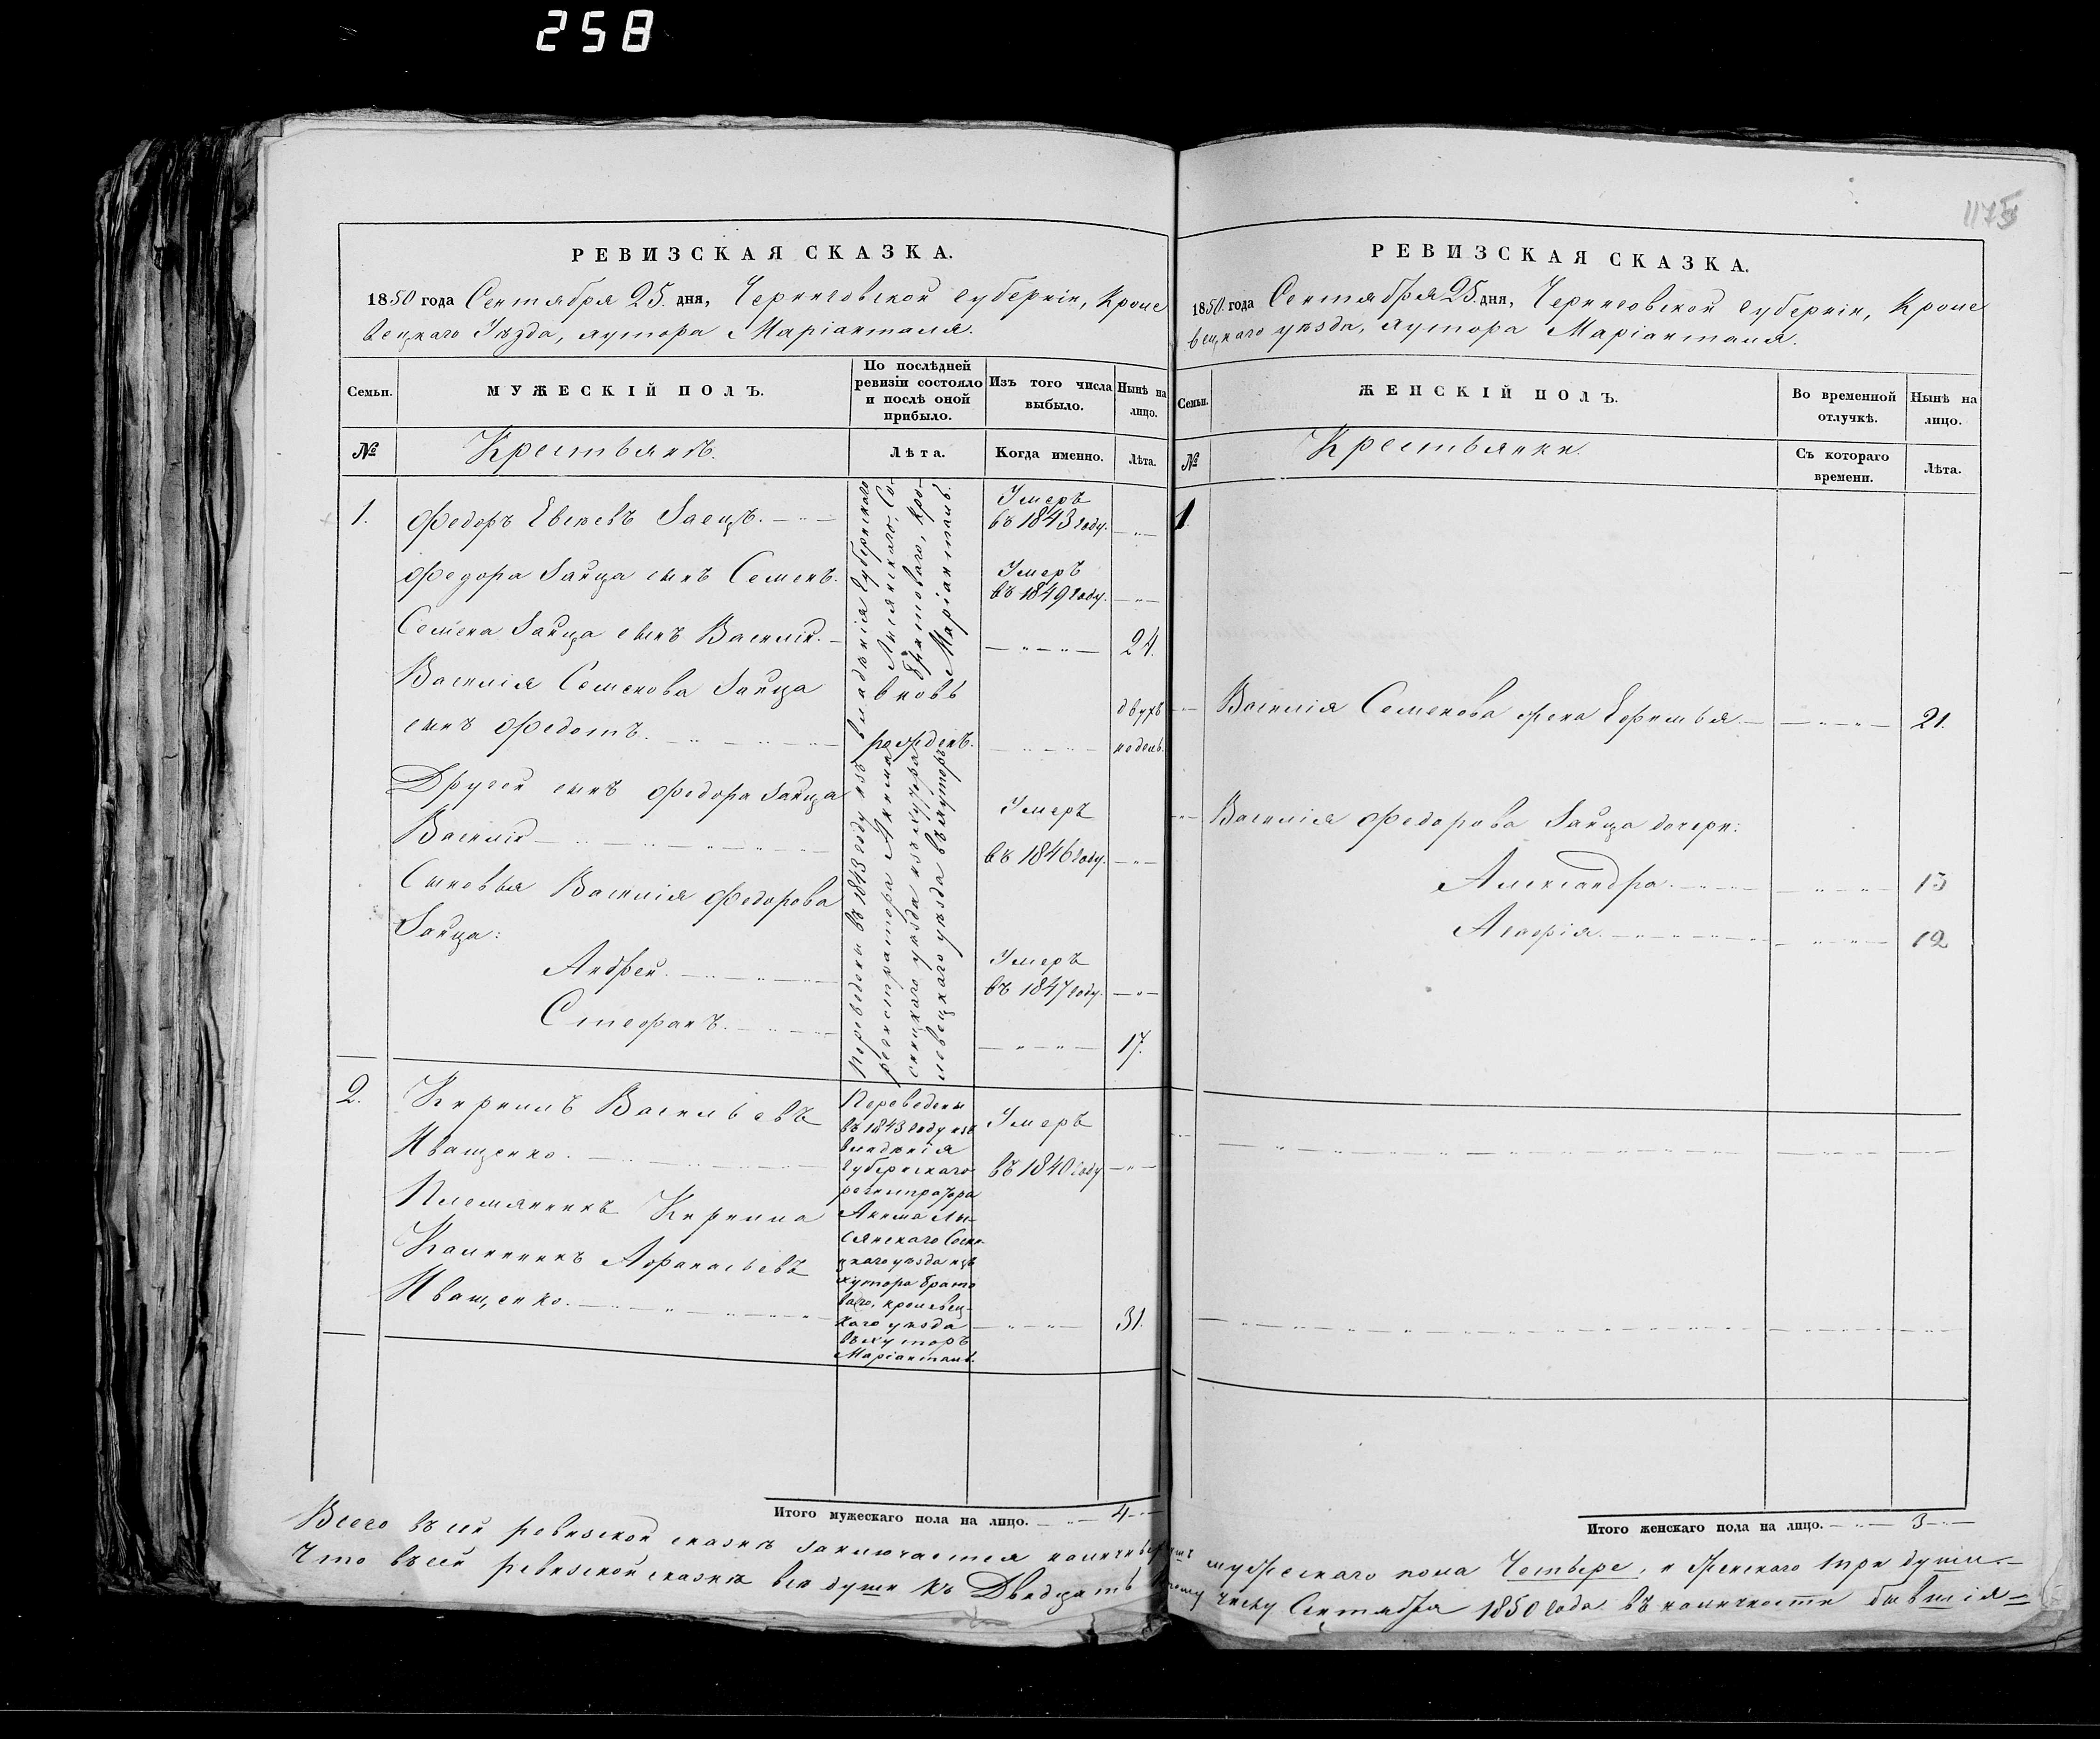 258
1175
РЕВИЗСКАЯ СКАЗКА.
1850 года Сентября 25. дня, Черниговской губернiи, Кроле
вецкаго Уѣзда, хутора Марiанталя.
Семьи.
МУЖЕСКIЙ ПОЛЪ.
По послѣдней
ревизiи состояло
и послѣ оной
прибыло.
Изъ того числа
выбыло.
Нынѣ на
лицо.
№
Крестьянѣ.
Лѣта.
Когда именно.
Лѣта.
1.
Федоръ Евсѣевъ Заецъ.
Умеръ
въ 1843 году.
Федора Зайца сынъ Семенъ.
Умеръ
въ 1849 году.
Семена Зайца сынъ Василiй.
24.
Василiя Семенова Зайца
вновь
двухъ
сынъ Федотъ.
рожденъ.
недель.
Другой сынъ Федора Зайца
Умеръ
Василiй
въ 1846 году.
Сыновья Василiя Федорова
Зайца:
Андрей.
Умеръ
въ 1847 году.
Стефанъ.
17.
Переведены въ 1843 году изъ владѣнiя губернскаго
регистратора Акима Лысянскаго, Со-
сницкаго уѣзда изъ хутора Братоваго, Кро-
левецкаго уѣзда въ хуторъ Марiанталь.
2.
Кирилъ Васильевъ
Иващенко.
Умеръ
въ 1840 году
Племянникъ Кирила
Калинникъ Афанасьевъ
Иващенко.
31.
Переведены
въ 1843 году изъ
владѣнiя
губернскаго
регистратора
Акима Лы-
сянскаго Сосни-
цкаго уѣзда изъ
хутора Брато
ваго, кролевец-
каго уѣзда
въ хуторъ
Марiанталь.
Итого мужескаго пола на лицо. 4
РЕВИЗСКАЯ СКАЗКА.
1850. года Сентября 25. дня, Черниговской губернiи, Кроле
вецкаго уѣзда, хутора Марiанталя.
Семьи.
ЖЕНСКIЙ ПОЛЪ.
Во временной
отлучкѣ.
Нынѣ на
лицо.
№
Крестьянки.
Съ котораго
времени.
Лѣта.
1
Василiя Семенова жена Ефимья
21.
Василiя Федорова Зайца дочери:
Александра
13
Агафiя
12
Итого женскаго пола на лицо. 3
Всего въ сей ревизской сказкѣ заключается наличныхъ мужескаго пола Четыре, и женскаго три души.
Что въ сей ревизской сказкѣ всѣ души къ Двадцать числу Сентября 1850 года въ наличности бывшiя